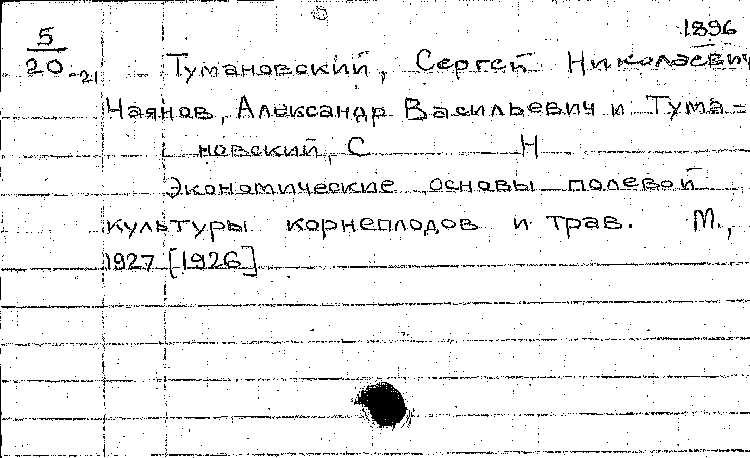 1896
5
20-21 Тумановский, Сергей Николаевич
Чаянов, Александр Васильевич и Тума=
новский, С Н
Экономические основы полевой
культуры корнеплодов и трав. М.,
1927 [1926]